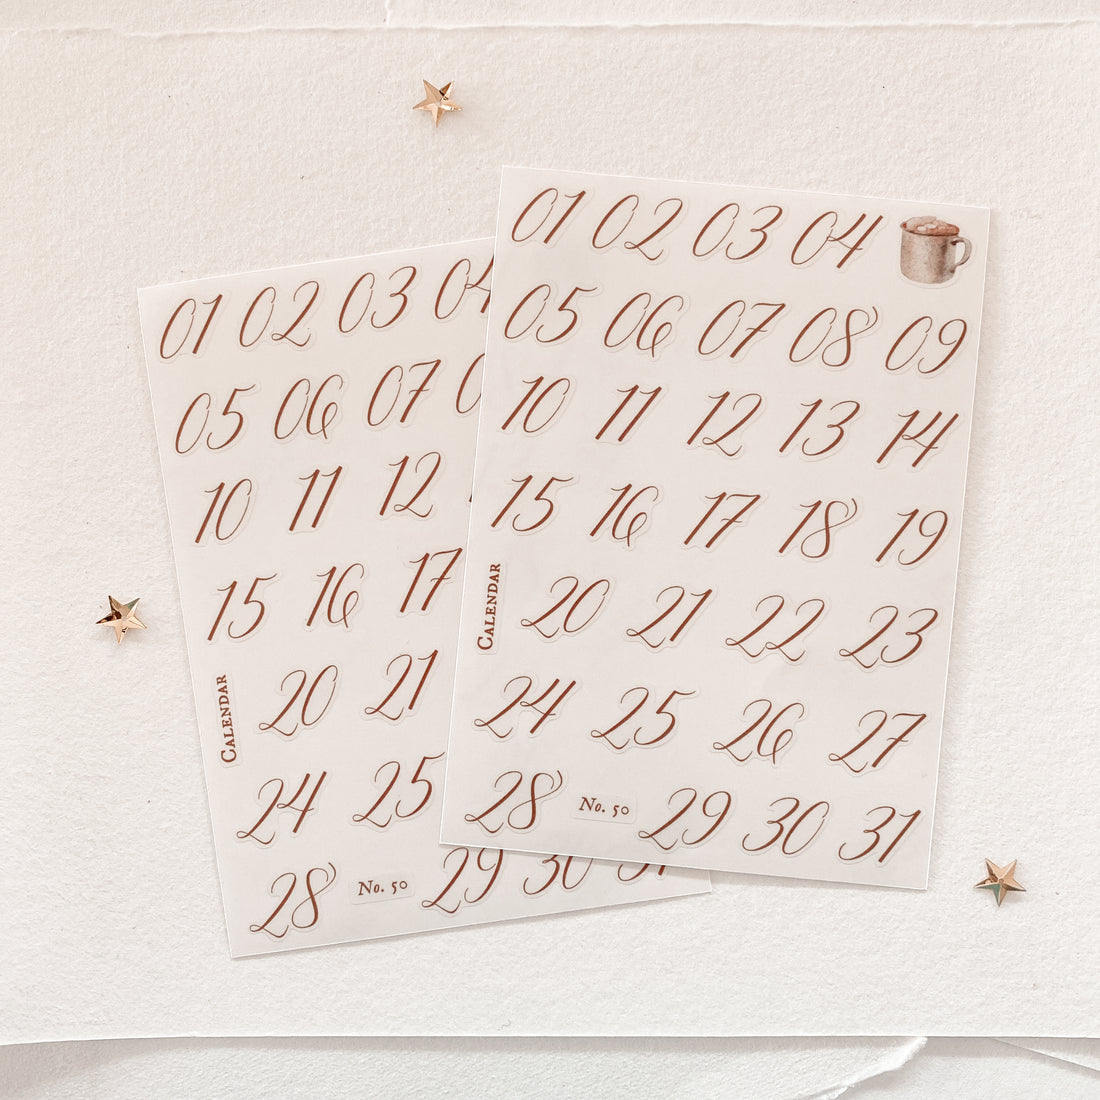 01 02 03 04
05 06 07
10 11 12
15 16 17
CALENDAR
20 21
24 25
28 No. 50 29 30 31
01 02 03 04
05 06 07 08 09
10 11 12 13 14
15 16 17 18 19
CALENDAR
20 21 22 23
24 25 26 27
28 No. 50 29 30 31